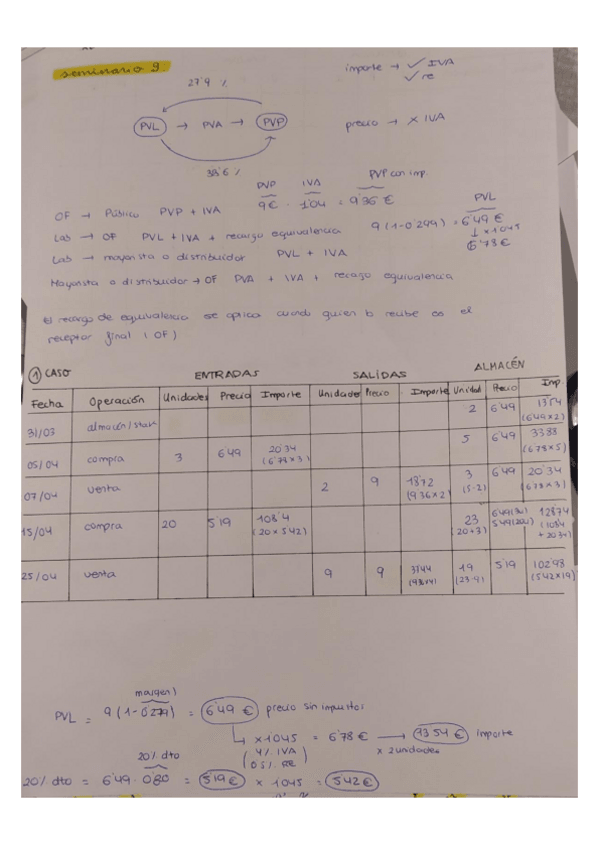 seminario 9.
importe → ✓ IVA
✓ re
27'9 %
PVL → PVA → PVP
precio → X IVA
38'6 %
PVP IVA PVP con imp.
OF → Público PVP + IVA 9€ · 1'04 = 9'36 €
PVL
Lab → OF PVL + IVA + recargo equivalencia 9(1-0'299) = 6'49 €
↓ x1'045
6'78 €
Lab → mayorista o distribuidor PVL + IVA
Mayorista o distribuidor → OF PVA + IVA + recargo equivalencia
El recargo de equivalencia se aplica cuando quien lo recibe es el
receptor final (OF)
① CASO ENTRADAS SALIDAS ALMACÉN
Fecha Operación Unidades Precio Importe Unidades Precio Importe Unidad Precio Imp.
31/03 almacén/ 2 6'49 13'54
(6'49 x 2)
05/04 compra 3 6'49 20'34 5 6'49 33'88
(6'78 x 3) (6'78 x 5)
07/04 venta 2 9 18'72 3 6'49 20'34
(9'36 x 2) (5-2) (6'78 x 3)
15/04 compra 20 5'19 108'4 23 128'74
(20 x 5'42) (20+3) (108'4
+ 20'34)
25/04 venta 9 9 19 5'19 102'98
(5'42 x 19)
margen
PVL = 9 (1-0'279) = 6'49 € precio sin impuestos
↳ x 1'045 = 6'78 € → 13'54 € importe
(4% IVA x 2 unidades
0'5% RE)
20% dto
20% dto = 6'49 · 0'80 = 5'19 € x 1'045 = 5'42 €